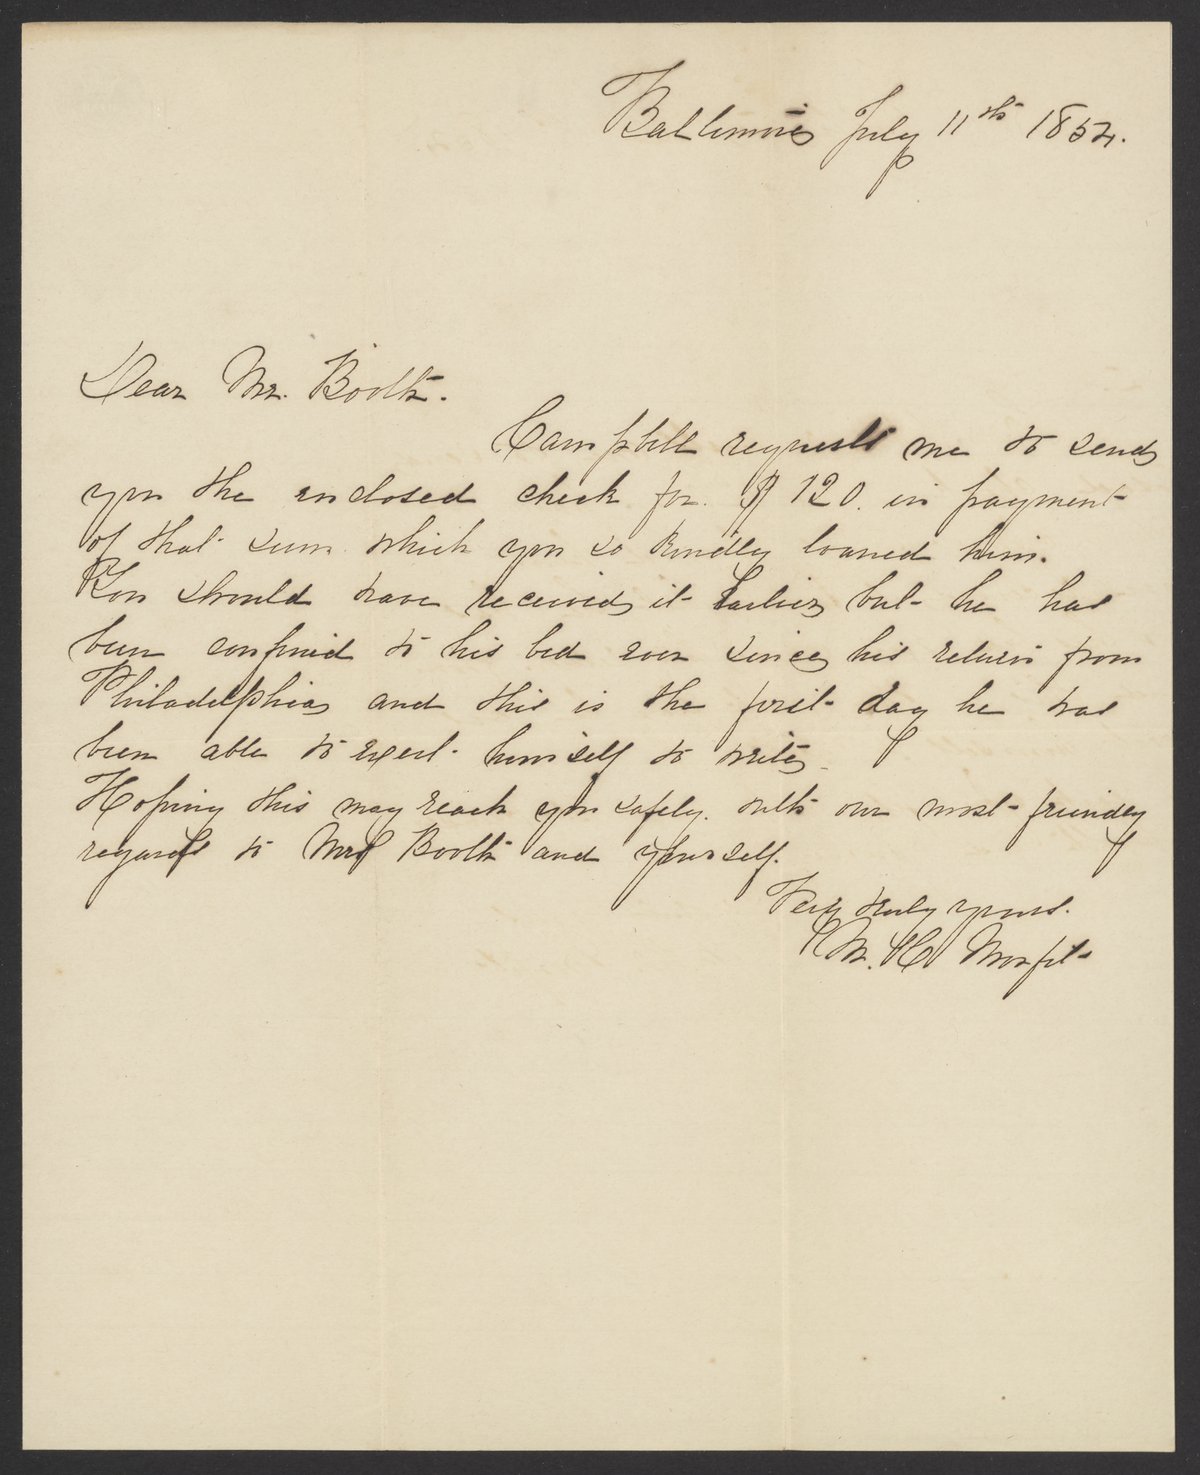 Baltimore July 11th 1854.
Dear Mr. Booth.
Campbell requests me to send
you the enclosed check for $120. in payment
of that sum which you so kindly loaned him.
You should have received it earlier but he has
been confined to his bed ever since his return from
Philadelphia and this is the first day he has
been able to exert himself to write.
Hoping this may reach you safely. with our most friendly
regards to Mrs Booth and yourself.
Very truly yours.
M. H. Morfit